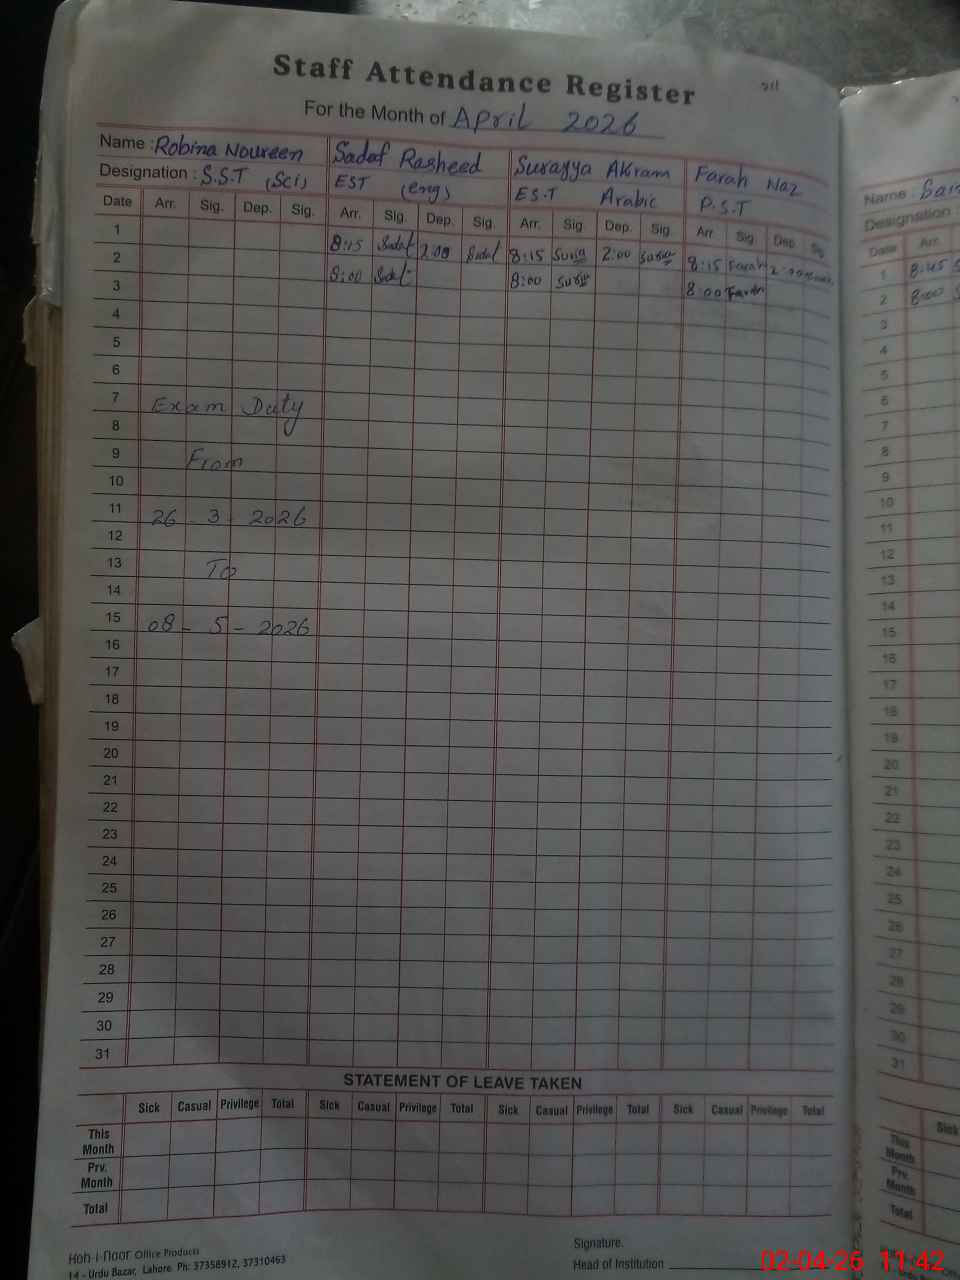 Staff Attendance Register
For the Month of April 2026
Name : Robina Noureen Sadaf Rasheed Surayya Akram Farah Naz
Designation : S.S.T (Sci) EST (eng) ES.T Arabic P.S.T
Date Arr. Sig. Dep. Sig. Arr. Sig. Dep. Sig. Arr. Sig. Dep. Sig. Arr. Sig. Dep. Sig.
1 8:15 Sadaf 2:00 Sadaf 8:15 2:00 8:15 Farah 2:00
2 8:00 8:00 8:00 Farah
3
4
5
6
7 Exam Duty
8
9 From
10
11 26 - 3 - 2026
12
13 To
14
15 08 - 5 - 2026
16
17
18
19
20
21
22
23
24
25
26
27
28
29
30
31
STATEMENT OF LEAVE TAKEN
Sick Casual Privilege Total Sick Casual Privilege Total Sick Casual Privilege Total Sick Casual Privilege Total
This Month
Prv. Month
Total
Koh-i-Noor Office Products
14 - Urdu Bazar, Lahore. Ph: 37358912, 37310463
Signature.
Head of Institution
Name :
Designation :
Date Arr.
1 8:45
2 8:00
3
4
5
6
7
8
9
10
11
12
13
14
15
16
17
18
19
20
21
22
23
24
25
26
27
28
29
30
31
Sick
This Month
Prv. Month
Total
02-04-26 11:42